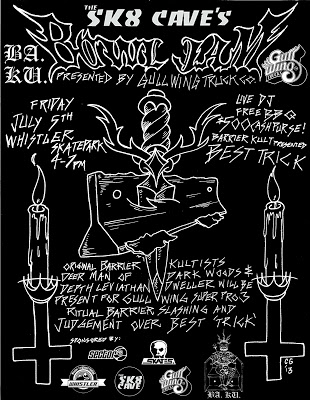 THE SK8 CAVE'S
BOWL JAM
BA.
KU.
PRESENTED BY GULLWING TRUCK CO.
Gull
Wing
FRIDAY
JULY 5TH
WHISTLER
SKATEPARK
4-7PM
LIVE DJ
FREE BBQ
$500 CASH PURSE!
BARRIER KULT PRESENTED
BEST TRICK
ORIGINAL BARRIER KULTISTS
DEER MAN OF DARK WOODS &
DEPTH LEVIATHAN DWELLER WILL BE
PRESENT FOR GULLWING SUPER PRO 3
RITUAL BARRIER SLASHING AND
JUDGEMENT OVER BEST TRICK
SPONSORED BY:
SKATES
WHISTLER
SK8
CAVE
Gull
Wing
BA. KU.
CG
'13